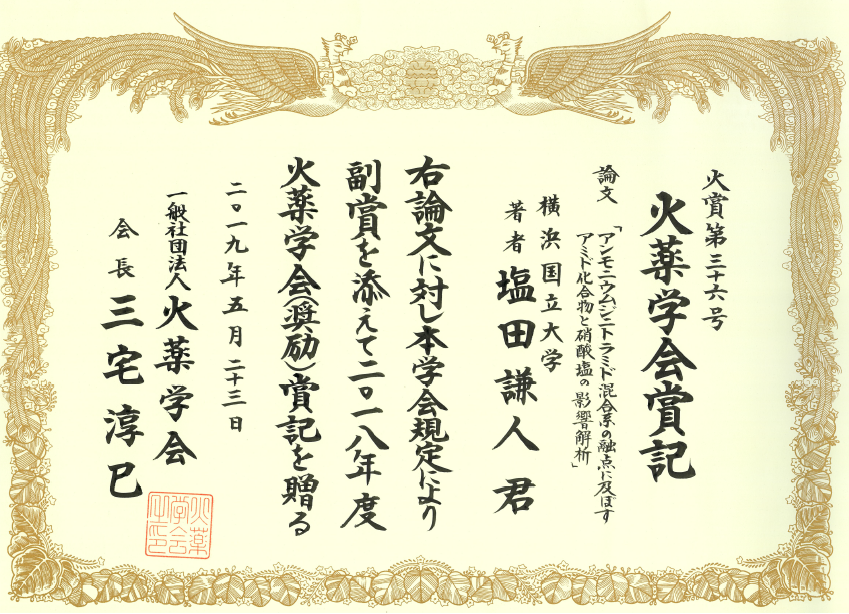 火賞第三十六号
火薬学会賞記
論文
「アンモニウムジニトラミド混合系の融点に及ぼす
アミド化合物と硝酸塩の影響解析」
横浜国立大学
著者 塩田謙人君
右論文に対し本学会規定により
副賞を添えて二〇一八年度
火薬学会(奨励)賞記を贈る
二〇一九年五月二十三日
一般社団法人火薬学会
会長 三宅淳巳
火薬
学会
之印